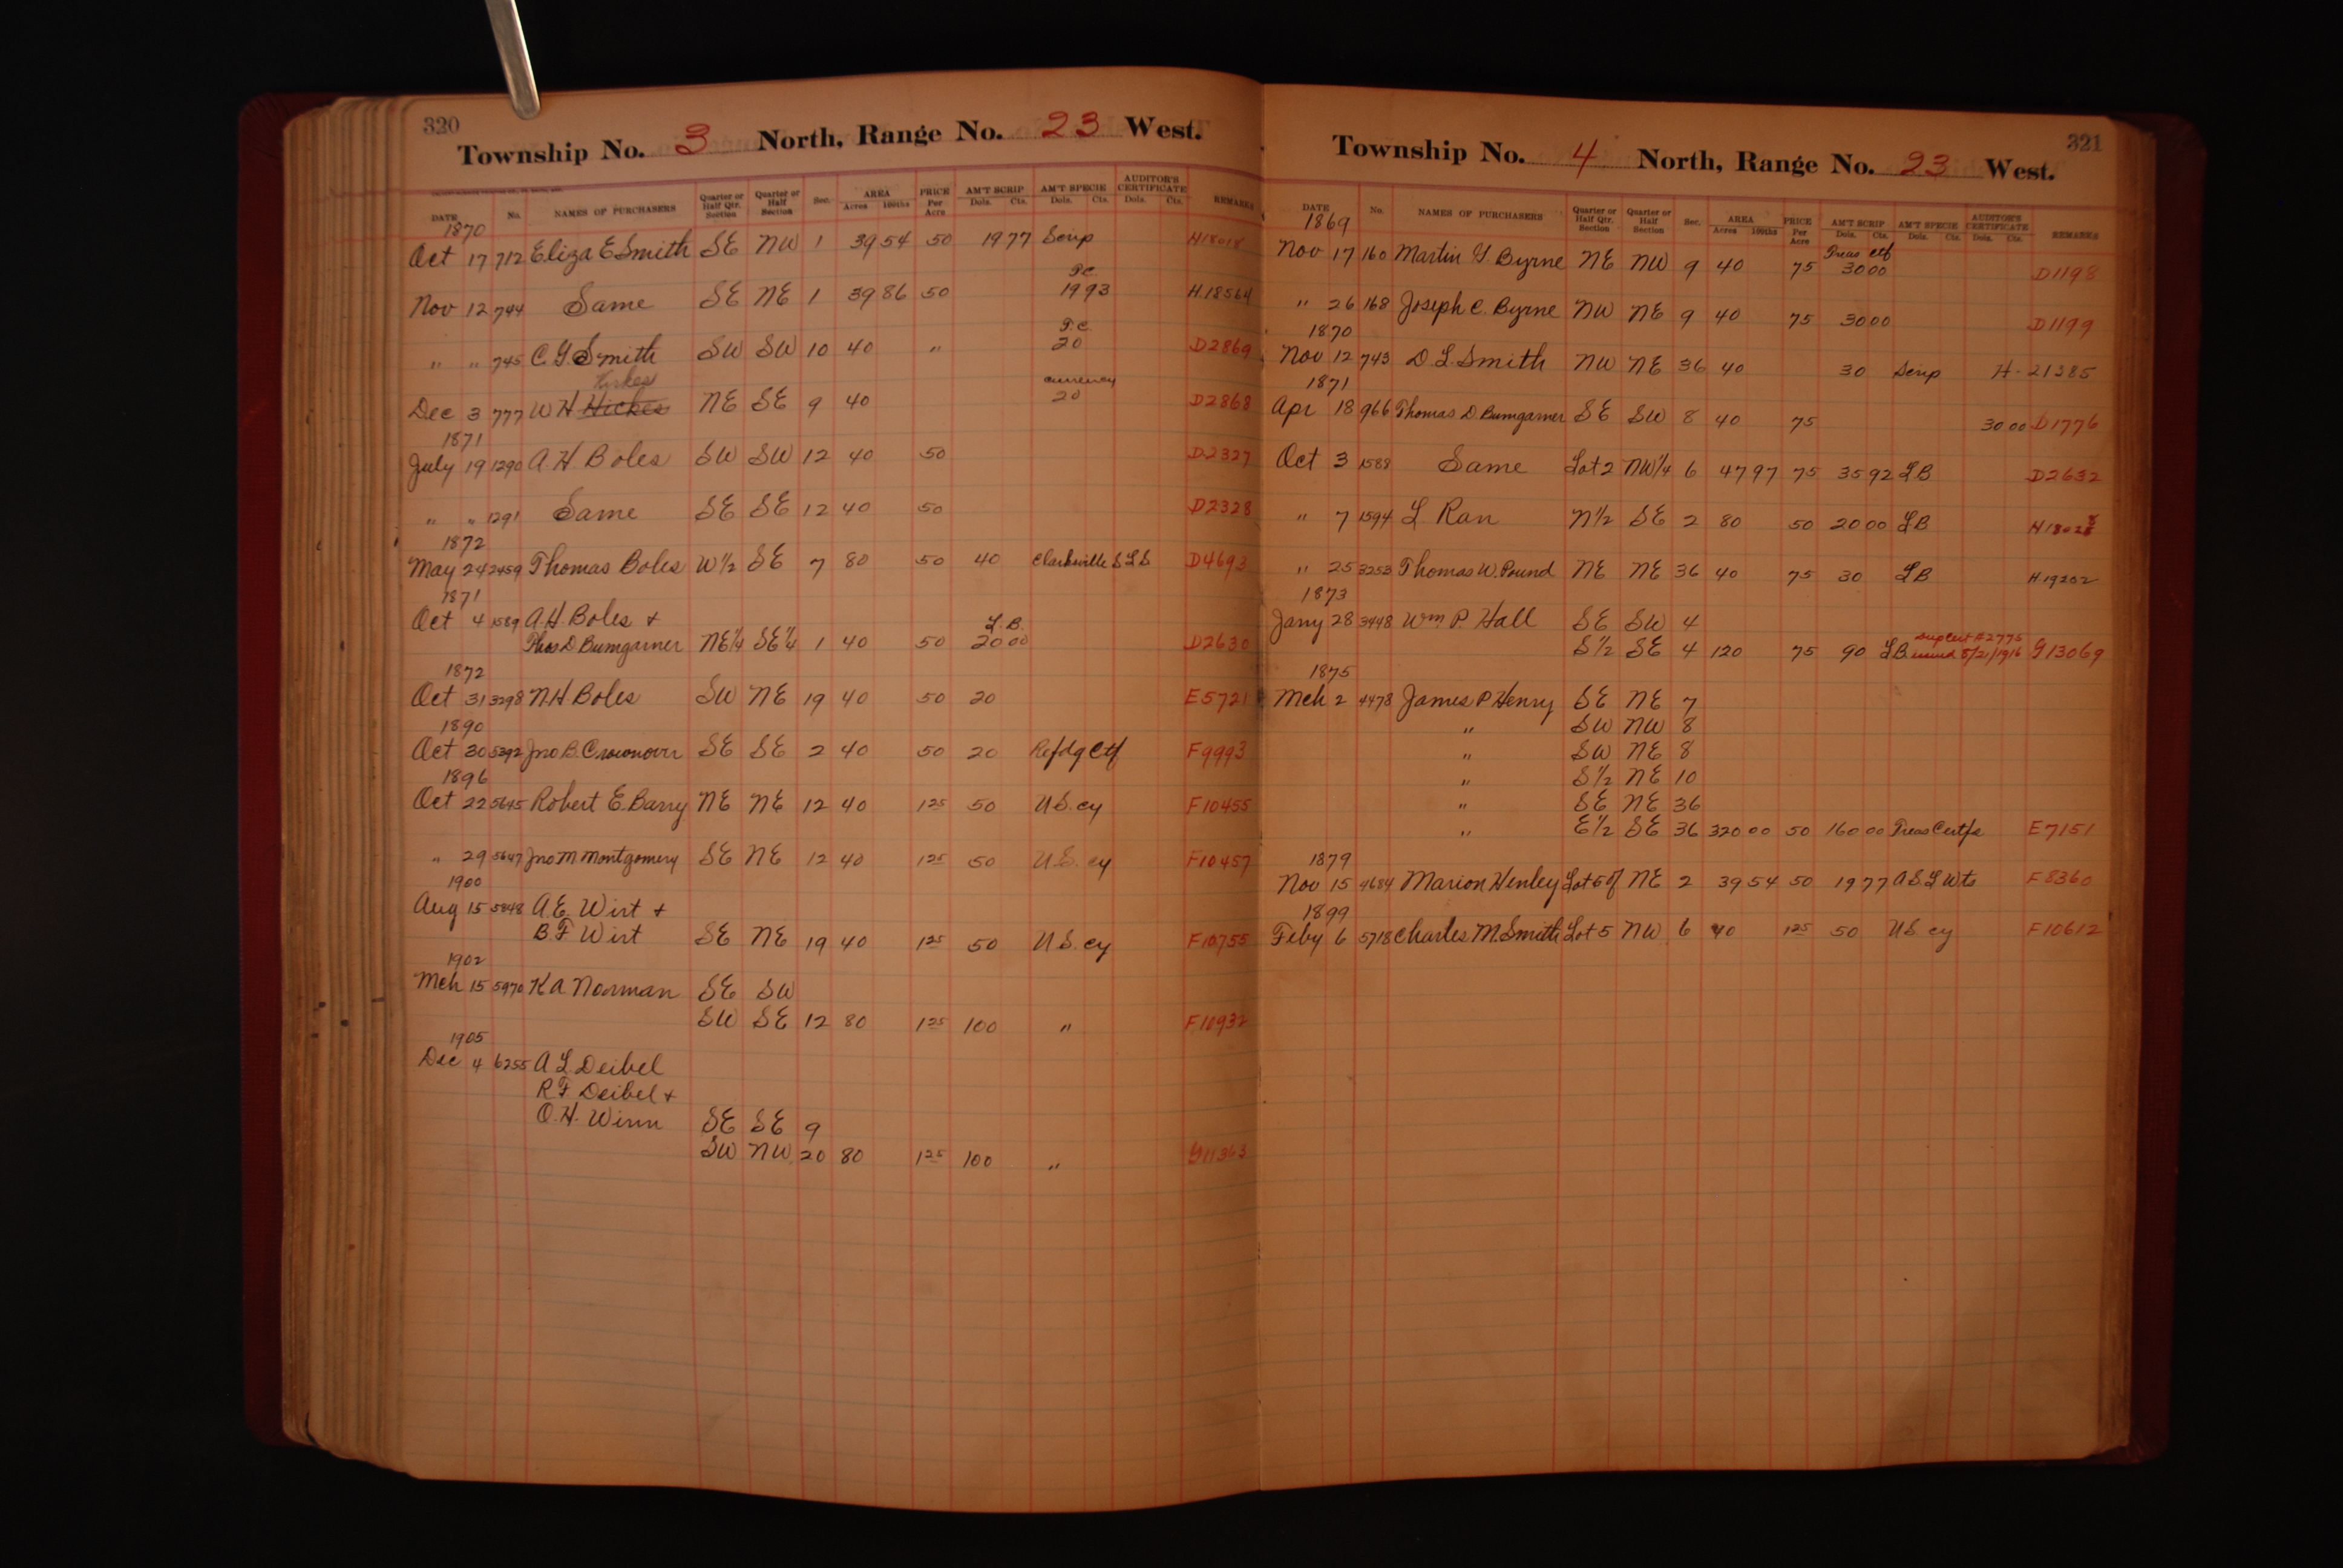 320
Township No. 3 North, Range No. 23 West.
DATE No. NAMES OF PURCHASERS Quarter or Half Qtr. Section Quarter or Half Section Sec. AREA Acres 100ths PRICE Per Acre AM'T SCRIP Dols. Cts. AM'T SPECIE Dols. Cts. AUDITOR'S CERTIFICATE Dols. Cts. REMARKS
1870
Oct 17 712 Eliza E Smith SE NW 1 39 54 50 19 77 Scrip H18018
T.C.
Nov 12 744 Same SE NE 1 39 86 50 19 93 H.18564
T.C.
" " 745 C. Y. Smith SW SW 10 40 " 20 D2869
Kirkes currency
Dec 3 777 W H Hickes NE SE 9 40 20 D2868
1871
July 19 1290 A. H. Boles SW SW 12 40 50 D2327
" " 1291 Same SE SE 12 40 50 D2328
1872
May 24 2459 Thomas Boles W½ SE 7 80 50 40 Clarksville S L S D4693
1871
Oct 4 1589 A. H. Boles + L. B.
Thos D Bumgarner NE¼ SE¼ 1 40 50 20 00 D2630
1872
Oct 31 3298 N. H. Boles SW NE 19 40 50 20 E5721
1890
Oct 30 5392 Jno B. Crownover SE SE 2 40 50 20 Refdg Ctf F9993
1896
Oct 22 5645 Robert E. Barry NE NE 12 40 1 25 50 U S. cy F10455
" 29 5647 Jno M Montgomery SE NE 12 40 1 25 50 U.S. cy F10457
1900
Aug 15 5848 A. E. Wirt +
B. F Wirt SE NE 19 40 1 25 50 U S. cy F10755
1902
Mch 15 5970 K A. Norman SE SW
SW SE 12 80 1 25 100 " F.10932
1905
Dec 4 6255 A L Deibel
R F Deibel +
O. H. Winn SE SE 9
SW NW 20 80 1 25 100 " G11363
321
Township No. 4 North, Range No. 23 West.
DATE No. NAMES OF PURCHASERS Quarter or Half Qtr. Section Quarter or Half Section Sec. AREA Acres 100ths PRICE Per Acre AM'T SCRIP Dols. Cts. AM'T SPECIE Dols. Cts. AUDITOR'S CERTIFICATE Dols. Cts. REMARKS
1869
Treas ctf
Nov 17 160 Martin G. Byrne NE NW 9 40 75 30 00 D1198
" 26 168 Joseph C. Byrne NW NE 9 40 75 30 00 D1199
1870
Nov 12 743 D. L. Smith NW NE 36 40 30 Scrip H- 21385
1871
Apr 18 966 Thomas D. Bumgarner SE SW 8 40 75 30 00 D1776
Oct 3 1588 Same Lot 2 NW¼ 6 47 97 75 35 92 LB D2632
" 7 1594 L Ran N½ SE 2 80 50 20 00 LB H18028
" 25 3253 Thomas W. Pound NE NE 36 40 75 30 LB H19202
1873
Jany 28 3448 Wm P. Hall SE SW 4
S½ SE 4 120 75 90 LB Dup Cert # 2775 issued 8/21/1916 G13069
1875
Mch 2 4478 James P Henry SE NE 7
" SW NW 8
" SW NE 8
" S½ NE 10
" SE NE 36
" E½ SE 36 320 00 50 160 00 Treas Certfs E7151
1879
Nov 15 4684 Marion Henley Lot 5 of NE 2 39 54 50 19 77 A S. L Wts F8360
1899
Feby 6 5718 Charles M. Smith Lot 5 NW 6 40 1 25 50 U S cy F10612